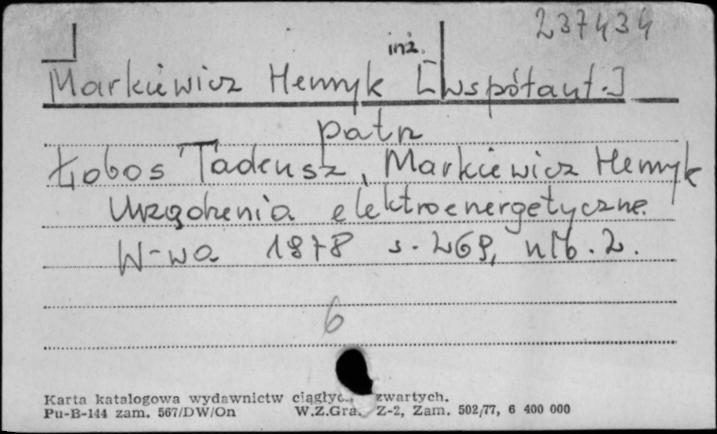 237434
inż.
Markiewicz Henryk [współaut.]
patrz
Łobos Tadeusz, Markiewicz Henryk
Urządzenia elektroenergetyczne.
W-wa 1978 s. 269, nlb. 2.
6
Karta katalogowa wydawnictw zwartych.
Pu-B-144 zam. 567/DW/On W.Z.Gra. Z-2, Zam. 502/77, 6 400 000